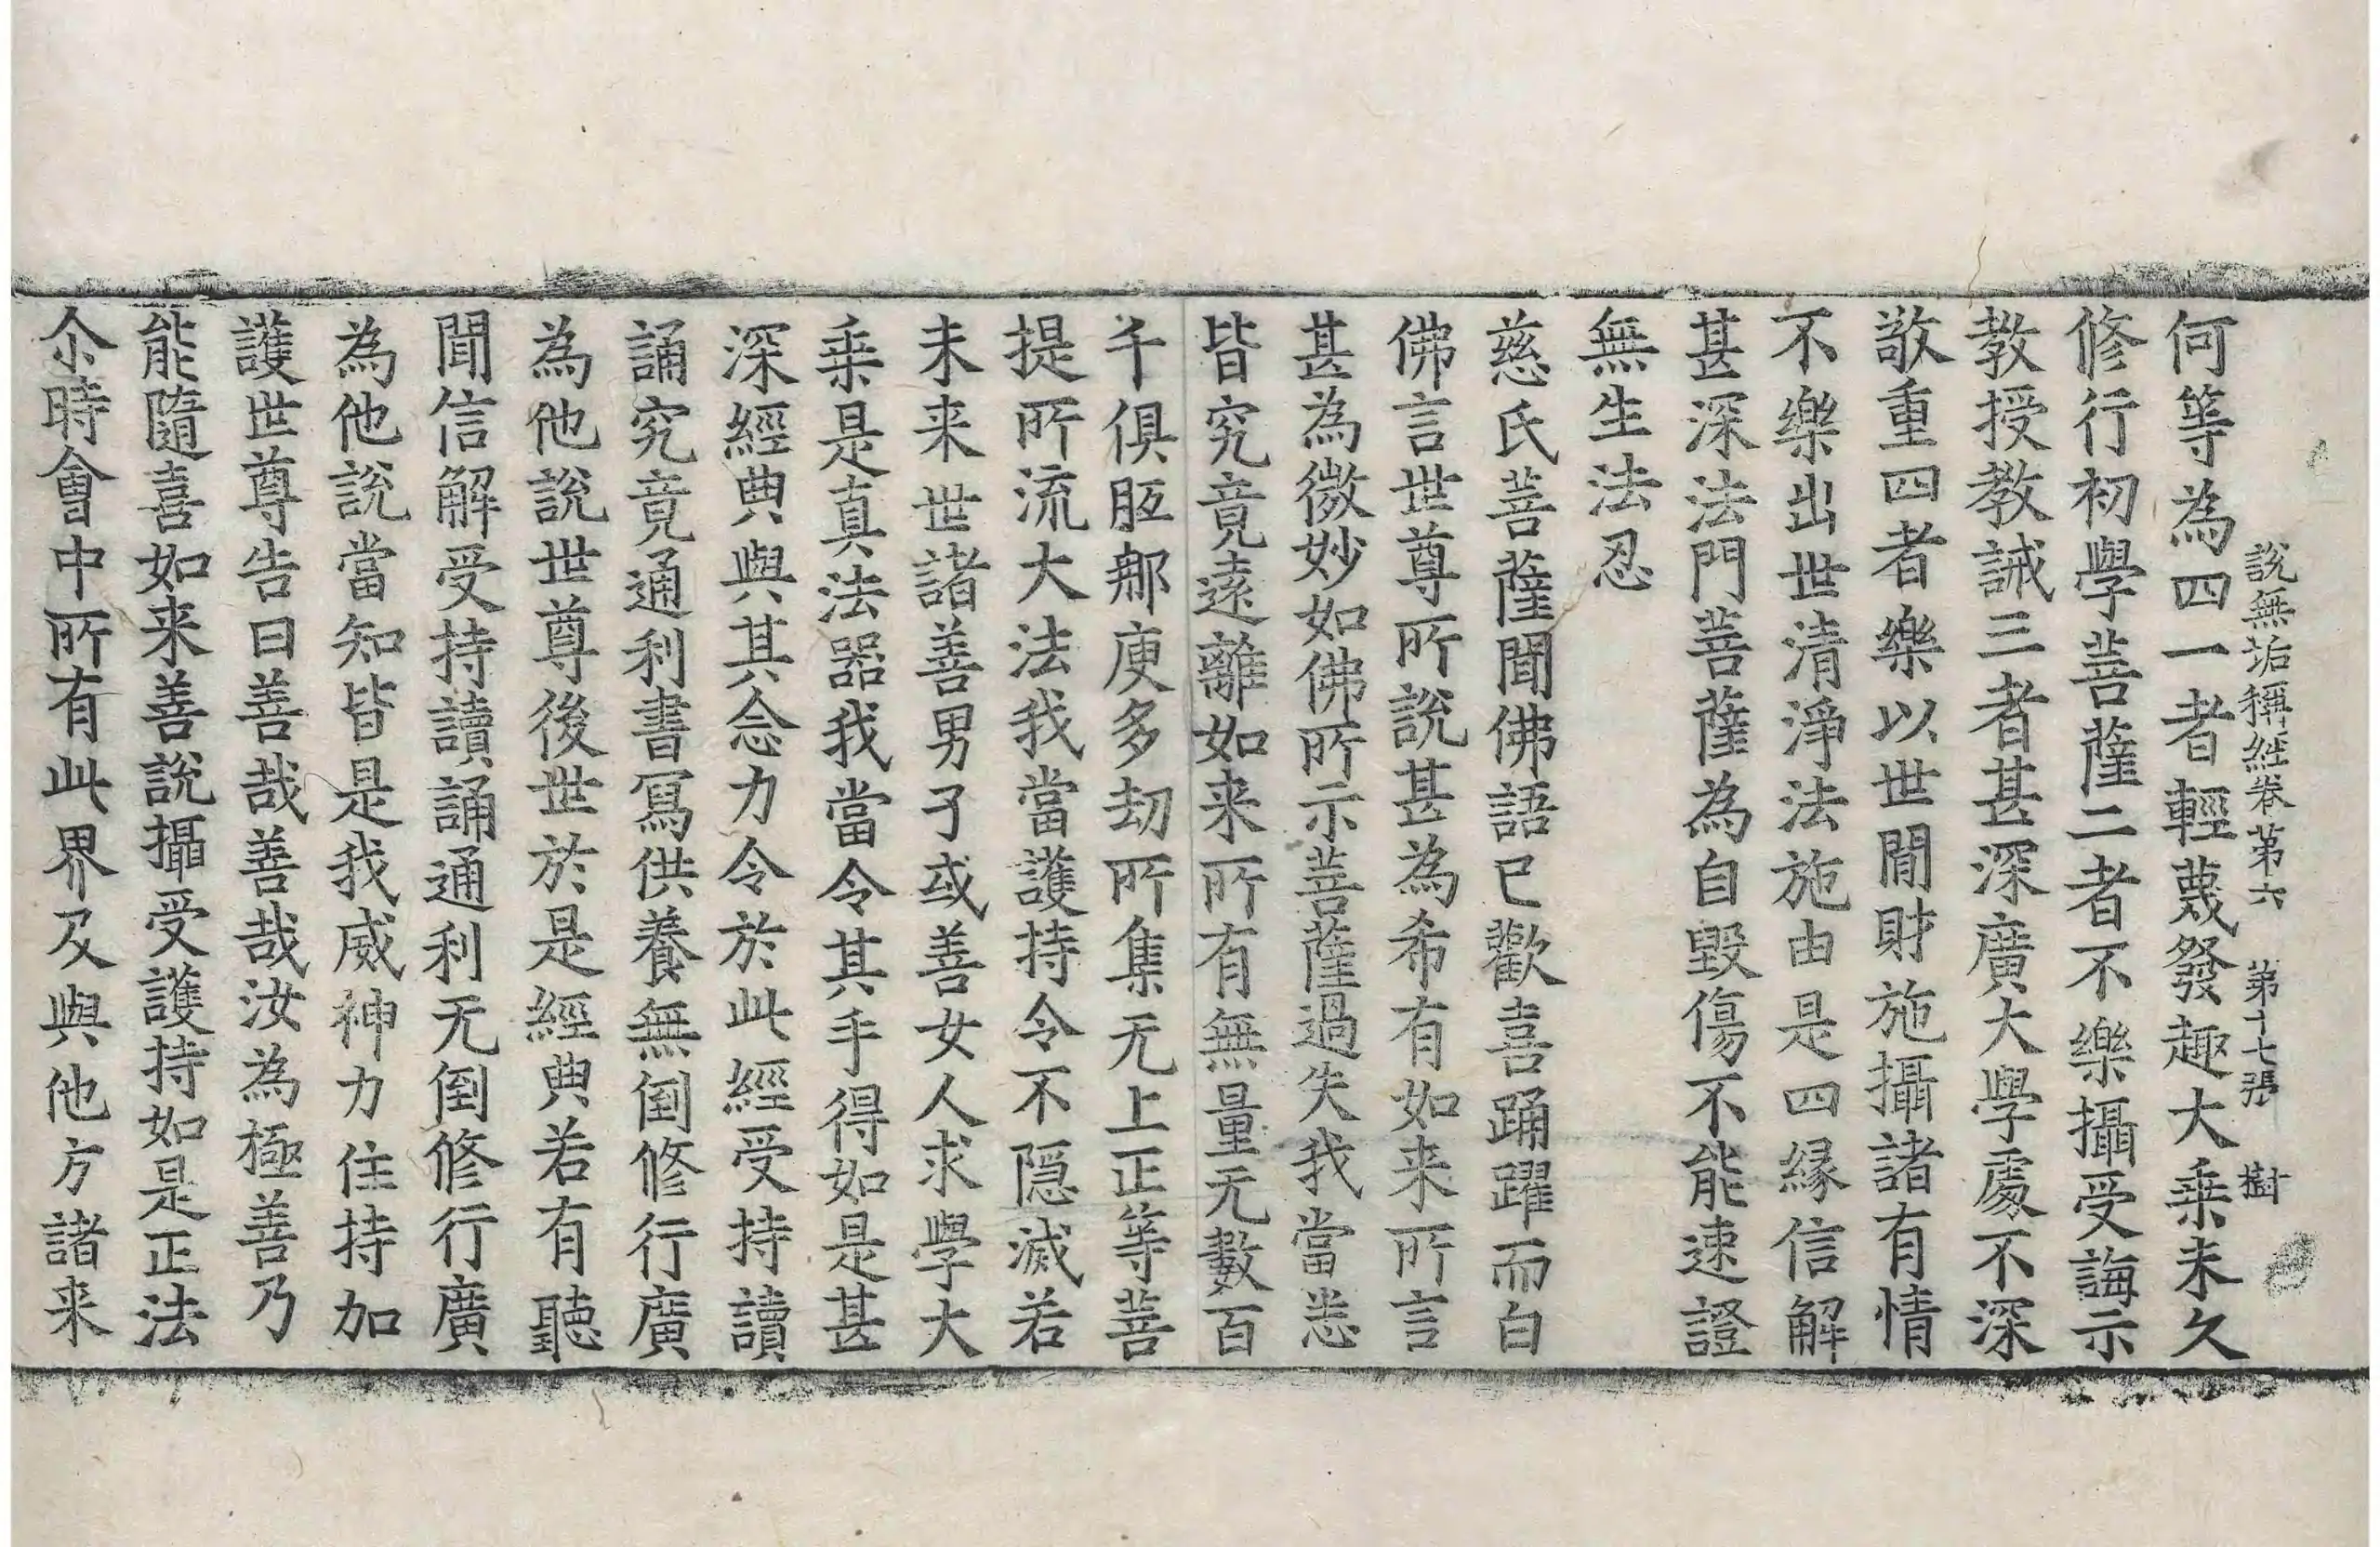 說無垢稱経卷第六 第十七張 樹
何等為四一者輕蔑發趣大乗未久
修行初學菩薩二者不樂攝受誨示
教授教誡三者甚深廣大學處不深
敬重四者樂以世間財施攝諸有情
不樂出世清淨法施由是四縁信解
甚深法門菩薩為自毀傷不能速證
無生法忍
慈氏菩薩聞佛語已歡喜踊躍而白
佛言世尊所說甚為希有如来所言
甚為微妙如佛所示菩薩過失我當悉
皆究竟遠離如来所有無量无數百
千俱胝那庾多劫所集无上正等菩
提所流大法我當護持令不隠滅若
未来世諸善男子或善女人求學大
乗是真法器我當令其手得如是甚
深經典與其念力令於此經受持讀
誦究竟通利書寫供養無倒修行廣
為他說世尊後世於是經典若有聽
聞信解受持讀誦通利无倒修行廣
為他說當知皆是我威神力住持加
護世尊告曰善哉善哉汝為極善乃
能隨喜如来善說攝受護持如是正法
尒時會中所有此界及與他方諸来